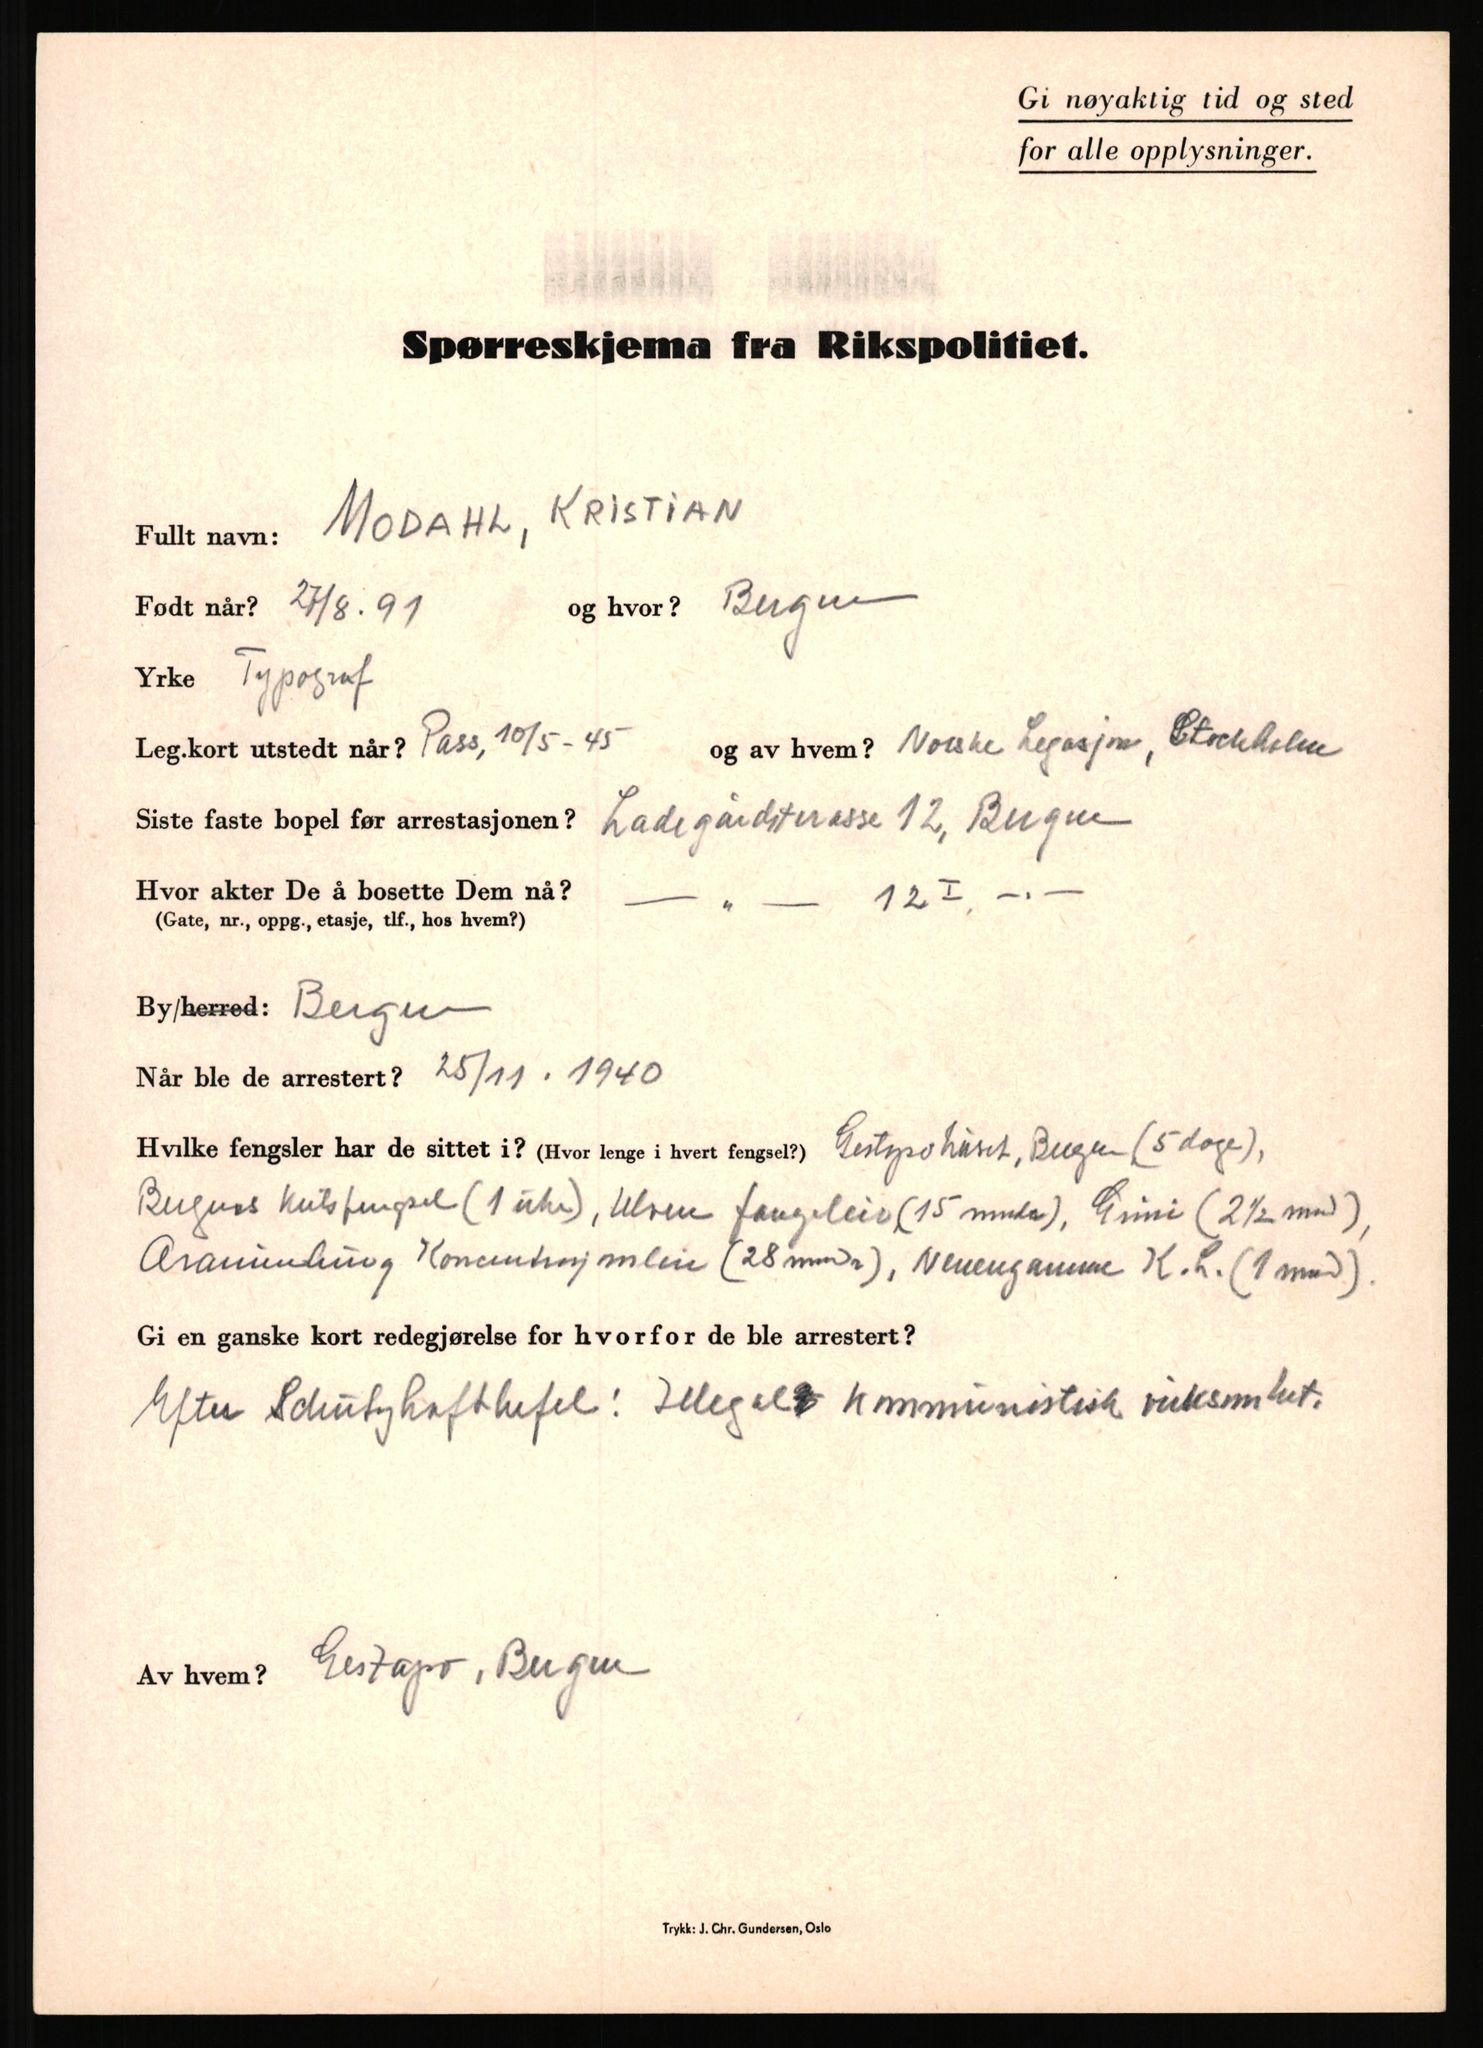 Gi nøyaktig tid og sted
for alle opplysninger.
Spørreskjema fra Rikspolitiet.
Fullt navn: MODAHL, KRISTIAN
Født når? 27/8.91 og hvor? Bergen
Yrke Typograf
Leg.kort utstedt når? Pass, 10/5-45 og av hvem? Norske Legasjon, Stockholm
Siste faste bopel før arrestasjonen? Ladegårdsterasse 12, Bergen
Hvor akter De å bosette Dem nå? — „ — 12 I, -.-
(Gate, nr., oppg., etasje, tlf., hos hvem?)
By/herred: Bergen
Når ble de arrestert? 25/11. 1940
Hvilke fengsler har de sittet i? (Hvor lenge i hvert fengsel?) Gestapohuset, Bergen (5 dage),
Bergens kretsfengsel (1 uke), Ulven fangeleir (15 mndr), Grini (2½ mnd),
Oranienburg Koncentrasjonsleir (28 mndr), Neuengamme K.L. (1 mnd).
Gi en ganske kort redegjørelse for hvorfor de ble arrestert?
Efter Schutzhaftbefel: Illegal kommunistisk virksomhet.
Av hvem? Gestapo, Bergen
Trykk: J. Chr. Gundersen, Oslo